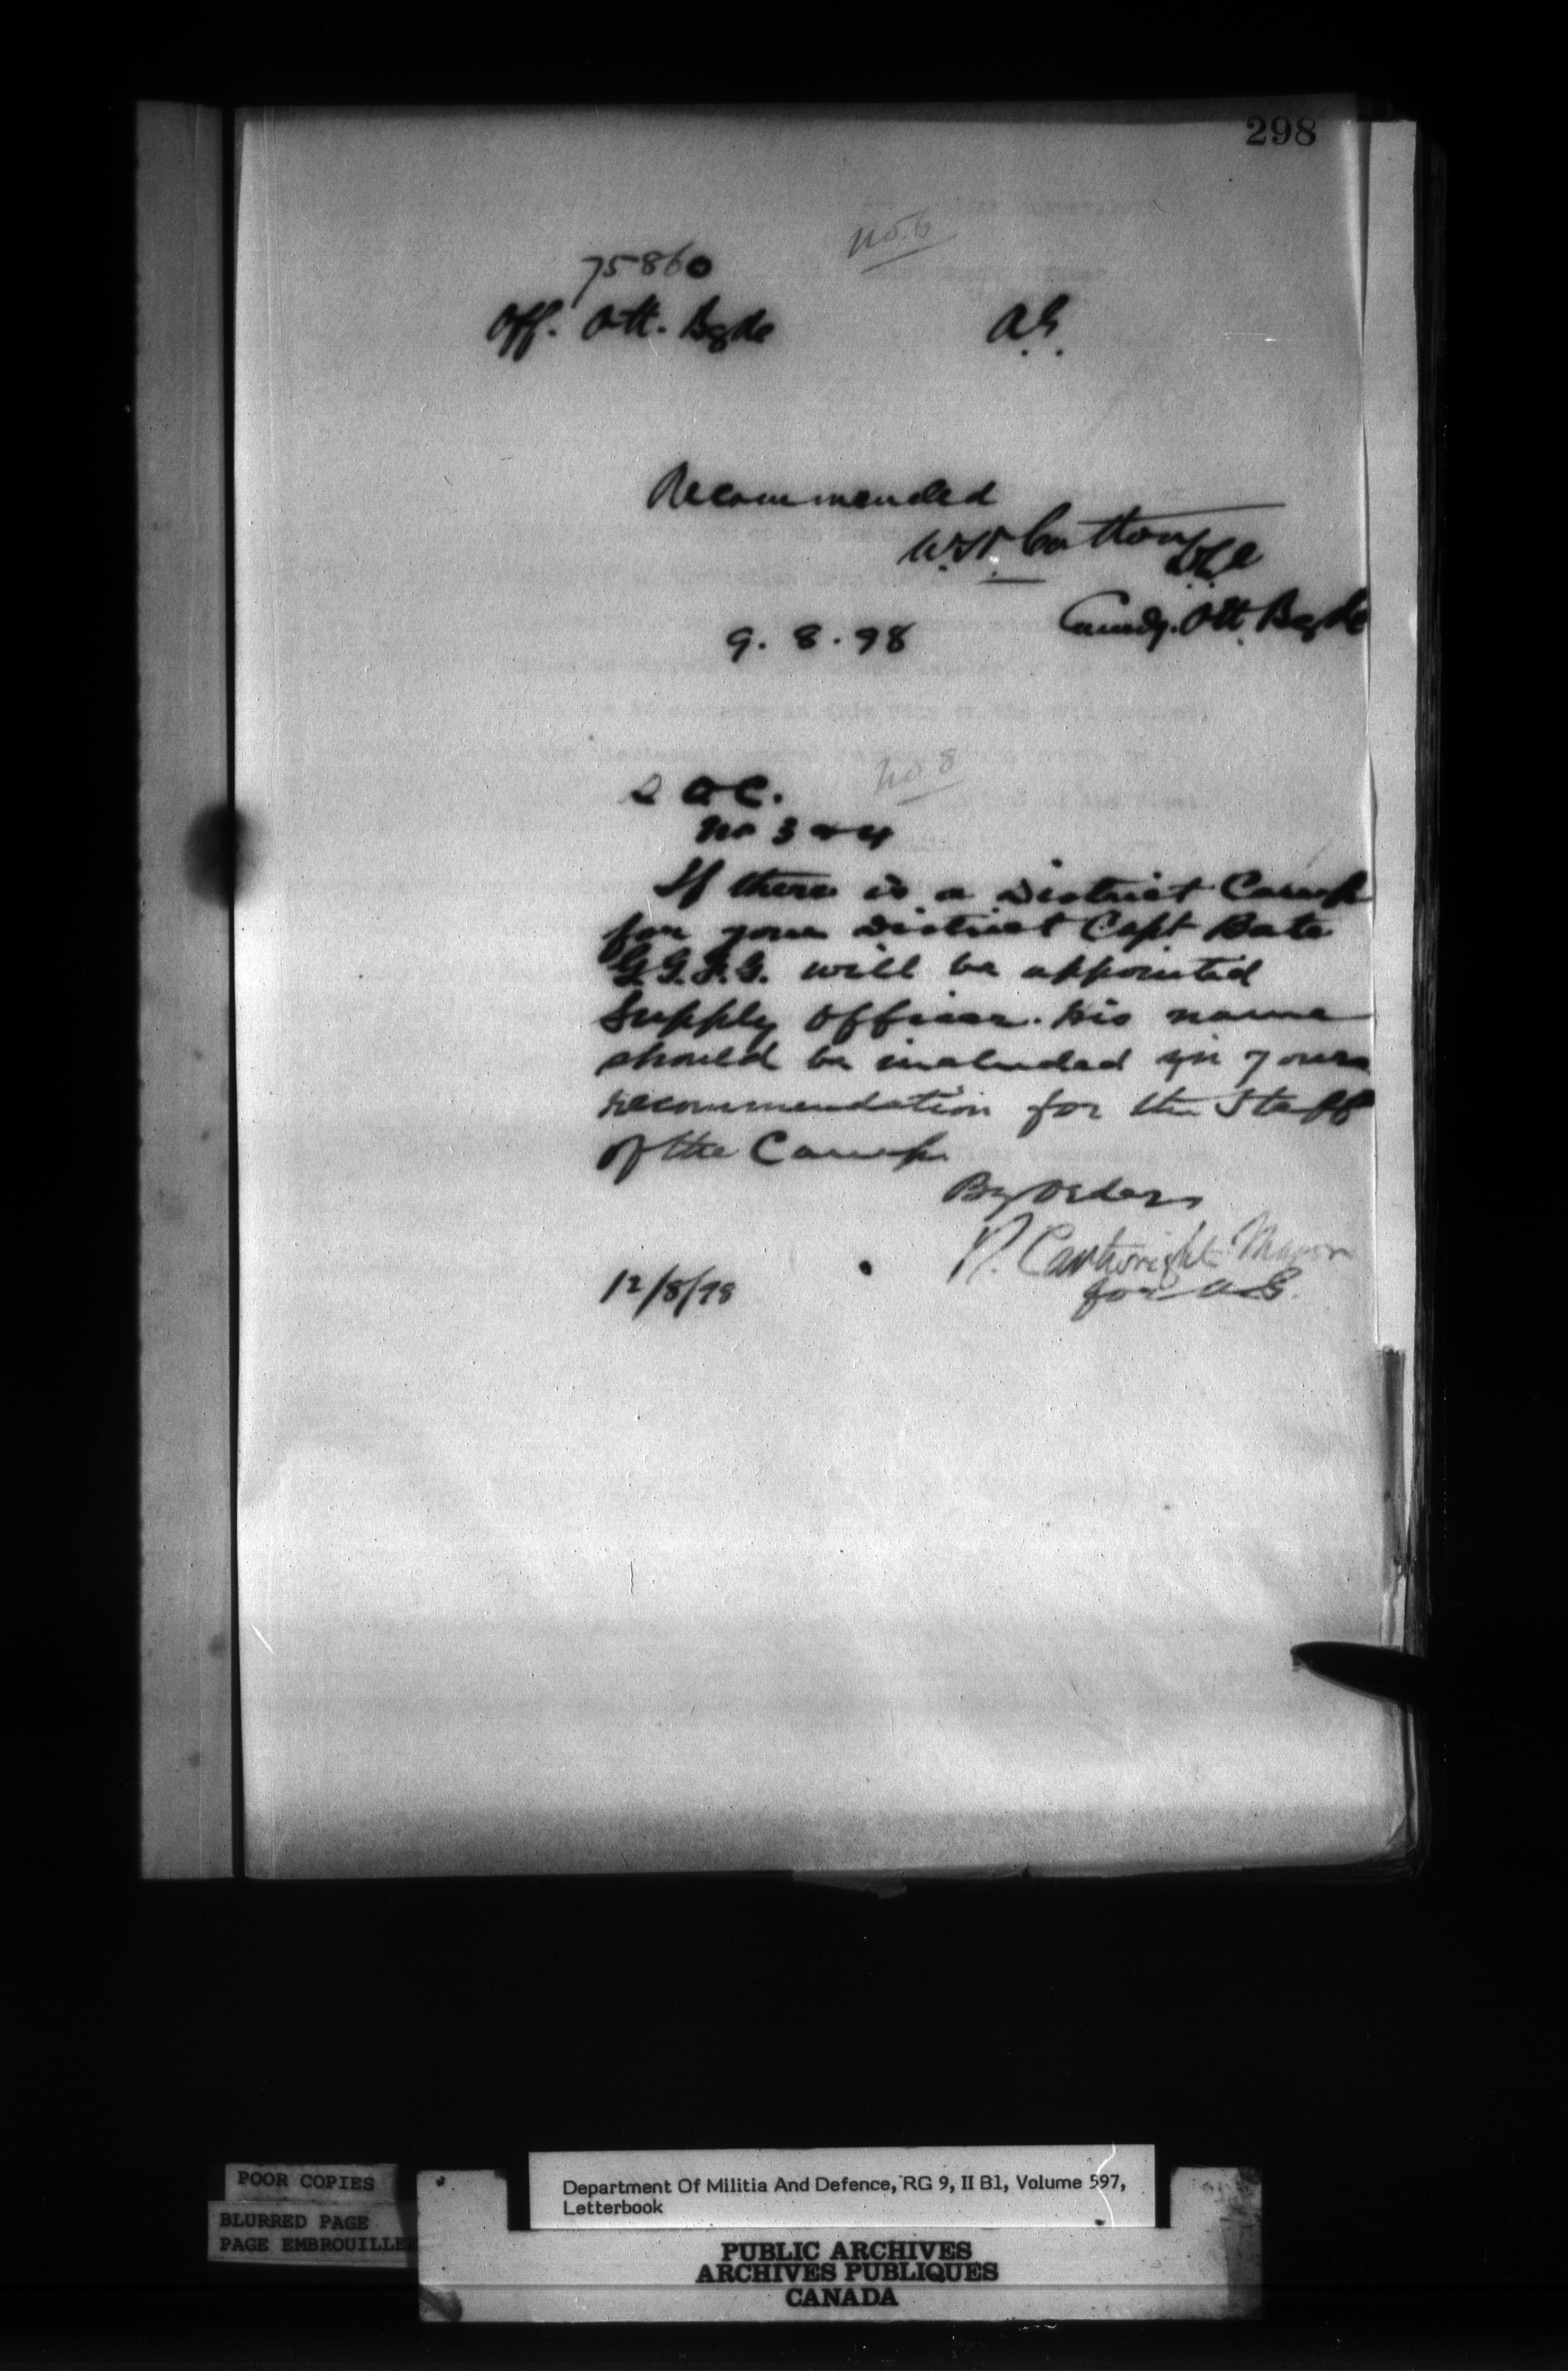 298
No. 6
75860
Off. Ott. Bgde
A.G.
Recommended
W.H. Cotton
Comdg. Ott. Bgde
9. 8. 98
No. 8
D O C.
No 3 & 4
If there is a District Camp
for your District Capt Bate
G.G.F.G. will be appointed
Supply Officer. his name
should be included in your
recommendation for the Staff
of the Camp.
By Order
R. Cartwright Major
for A.G.
12/8/98
POOR COPIES
BLURRED PAGE
PAGE EMBROUILLEE
Department Of Militia And Defence, RG 9, II B1, Volume 597,
Letterbook
PUBLIC ARCHIVES
ARCHIVES PUBLIQUES
CANADA